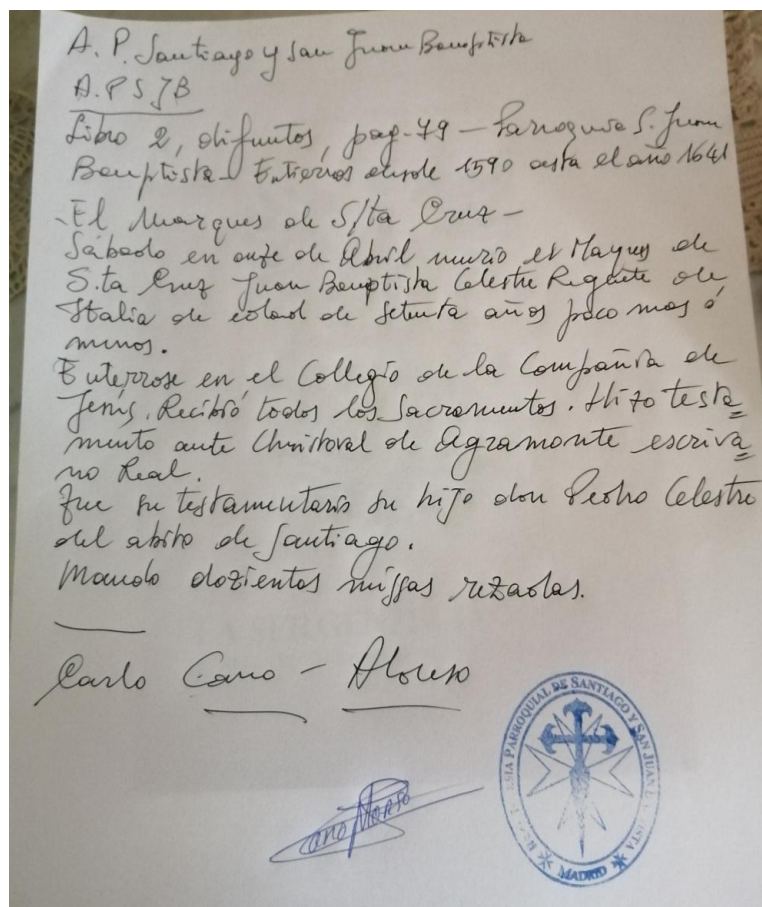 A. P. Santiago y San Juan Bauptista
A.P S J B
Libro 2, difuntos, pag. 79 - Parroquia S. Juan
Bauptista - Entierros desde 1590 asta el año 1641
- El Marques de S/ta Cruz -
Sábado en onze de Abril murio el Marques de
S.ta Cruz Juan Bauptista Celestre Regente de
Italia de edad de setenta años poco mas ó
menos.
Enterrose en el Collegio de la Compañia de
Jesús. Recibió todos los Sacramentos. Hizo testa=
mento ante Christoval de Agramonte escriva=
no Real.
Fue su testamentario su hijo don Pedro Celestre
del abito de Santiago.
Mando dozientas missas rezadas.
Carlo Cano - Alonso
Cano Alonso
PARROQUIAL DE SANTIAGO Y SAN JUAN
MADRID